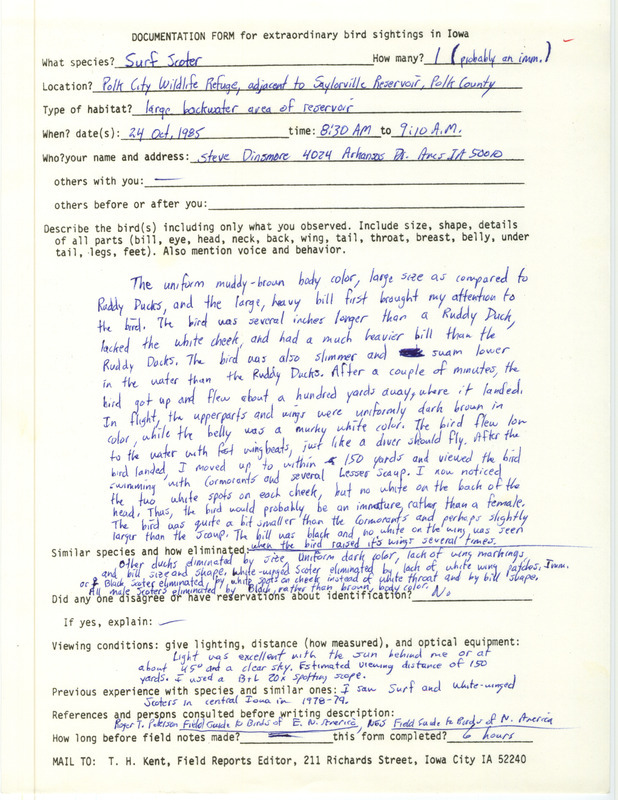 DOCUMENTATION FORM for extraordinary bird sightings in Iowa
What species? Surf Scoter How many? 1 (probably an imm.)
Location? Polk City Wildlife Refuge, adjacent to Saylorville Reservoir, Polk County
Type of habitat? large backwater area of reservoir
When? date(s): 24 Oct, 1985 time: 8:30 AM to 9:10 A.M.
Who?your name and address: Steve Dinsmore 4024 Arkansas Dr. Ames IA 50010
others with you: —
others before or after you:
Describe the bird(s) including only what you observed. Include size, shape, details
of all parts (bill, eye, head, neck, back, wing, tail, throat, breast, belly, under
tail, legs, feet). Also mention voice and behavior.
The uniform muddy-brown body color, large size as compared to
Ruddy Ducks, and the large, heavy bill first brought my attention to
the bird. The bird was several inches longer than a Ruddy Duck,
lacked the white cheek, and had a much heavier bill than the
Ruddy Ducks. The bird was also slimmer and swam lower
in the water than the Ruddy Ducks. After a couple of minutes, the
bird got up and flew about a hundred yards away, where it landed.
In flight, the upperparts and wings were uniformly dark brown in
color, while the belly was a murky white color. The bird flew low
to the water with fast wingbeats, just like a diver should fly. After the
bird landed, I moved up to within 150 yards and viewed the bird
swimming with Cormorants and several Lesser Scaup. I now noticed
the two white spots on each cheek, but no white on the back of the
head. Thus, the bird would probably be an immature, rather than a female.
The bird was quite a bit smaller than the Cormorants and perhaps slightly
larger than the Scaup. The bill was black and no white on the wing was seen
when the bird raised it's wings several times.
Similar species and how eliminated:
Other ducks eliminated by size, uniform dark color, lack of wing markings,
and bill size and shape. White-winged Scoter eliminated by lack of white wing patches. Imm.
or ♀ Black Scoter eliminated by white spots on cheek instead of white throat and by bill shape.
All male Scoters eliminated by Black, rather than brown, body color.
Did any one disagree or have reservations about identification? No
If yes, explain: —
Viewing conditions: give lighting, distance (how measured), and optical equipment:
Light was excellent with the sun behind me or at
about 45° and a clear sky. Estimated viewing distance of 150
yards. I used a B+L 20x spotting scope.
Previous experience with species and similar ones: I saw Surf and White-winged
Scoters in central Iowa in 1978-79.
References and persons consulted before writing description:
Roger T. Peterson Field Guide to Birds of E. N. America, NGS Field Guide to Birds of N. America
How long before field notes made? — this form completed? 6 hours
MAIL TO: T. H. Kent, Field Reports Editor, 211 Richards Street, Iowa City IA 52240